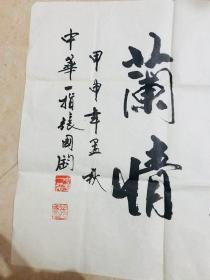 蘭情
甲申年孟秋
中華一指張國